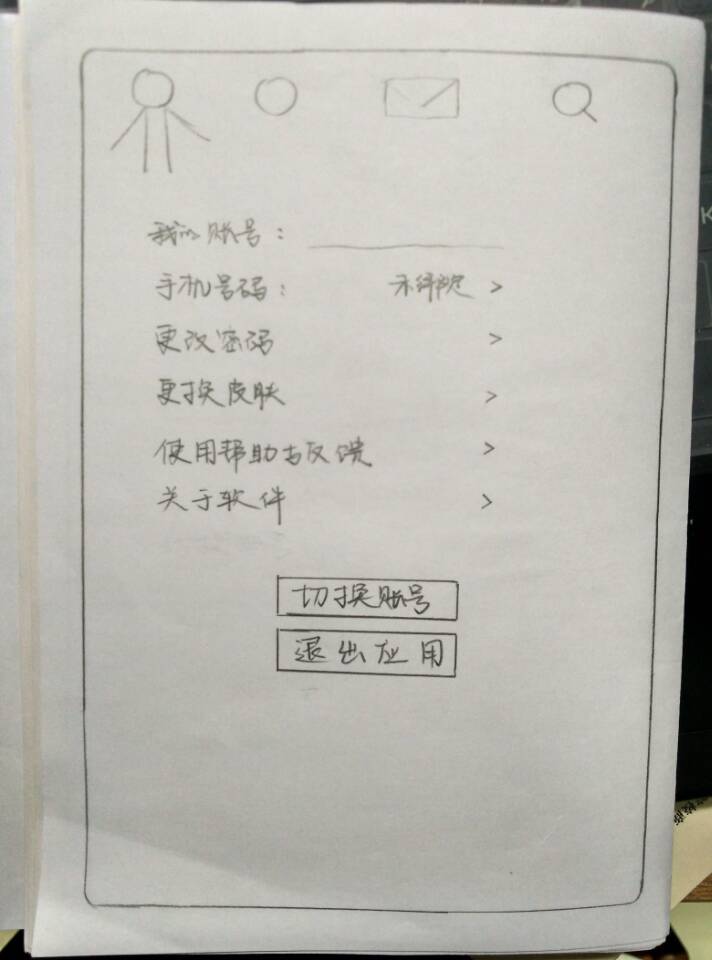 我的账号：
手机号码： 未绑定 >
更改密码 >
更换皮肤 >
使用帮助与反馈 >
关于软件 >
切换账号
退出应用
K